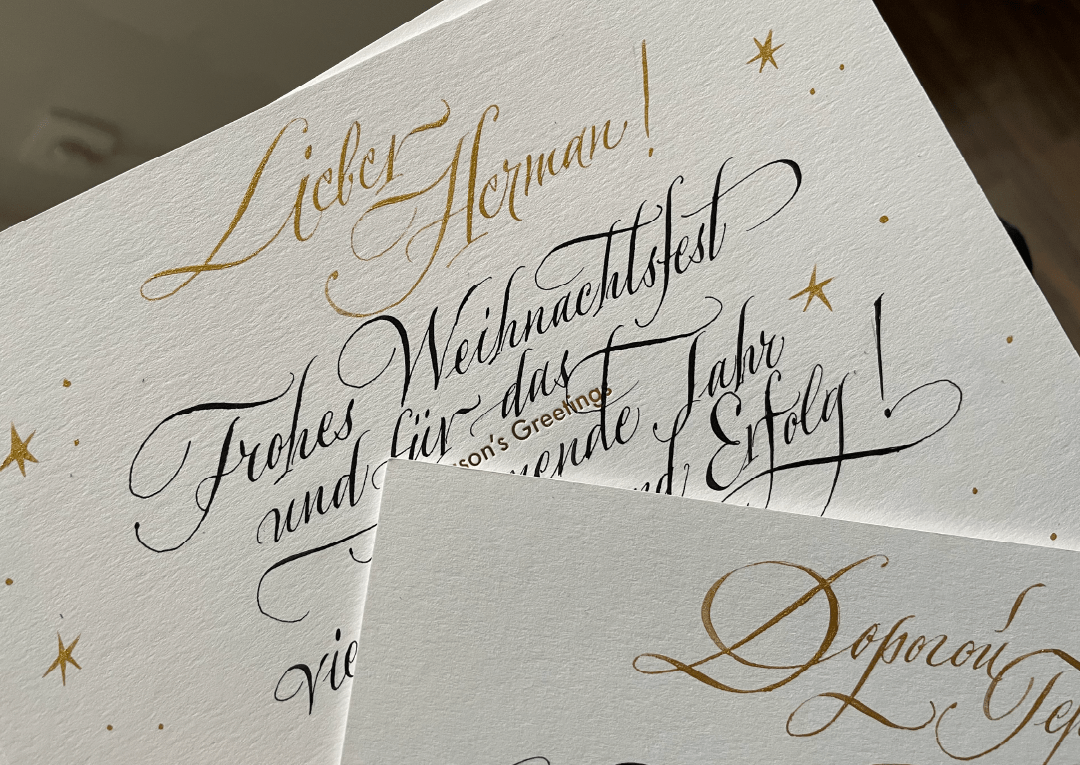 Lieber Herman!
Frohes Weihnachtsfest
und für das
Jahr
Erfolg!
Greetings
Дорогой